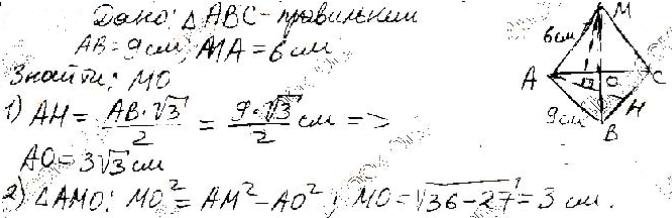 Дано: △ABC - правильний
AB = 9 см, MA = 6 см
Знайти: MO
1) AH = AB·√3/2 = 9·√3/2 см =>
AO = 3√3 см
2) △AMO: MO² = AM² - AO²; MO = √36-27 = 3 см.
M
6 см
A
O
C
H
9 см
B